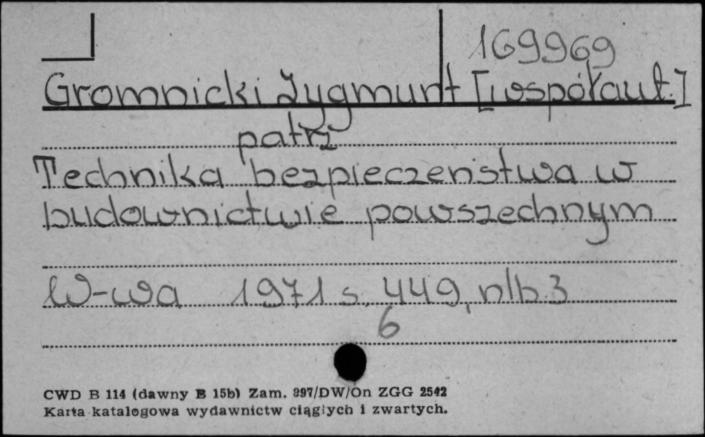 169969
Gromnicki Zygmunt [współaut.]
patrz
Technika bezpieczeństwa w
budownictwie powszechnym
W-wa 1971 s. 449, nlb. 3
6
CWD B 114 (dawny B 15b) Zam. 897/DW/On ZGG 2542
Karta katalogowa wydawnictw ciągłych i zwartych.